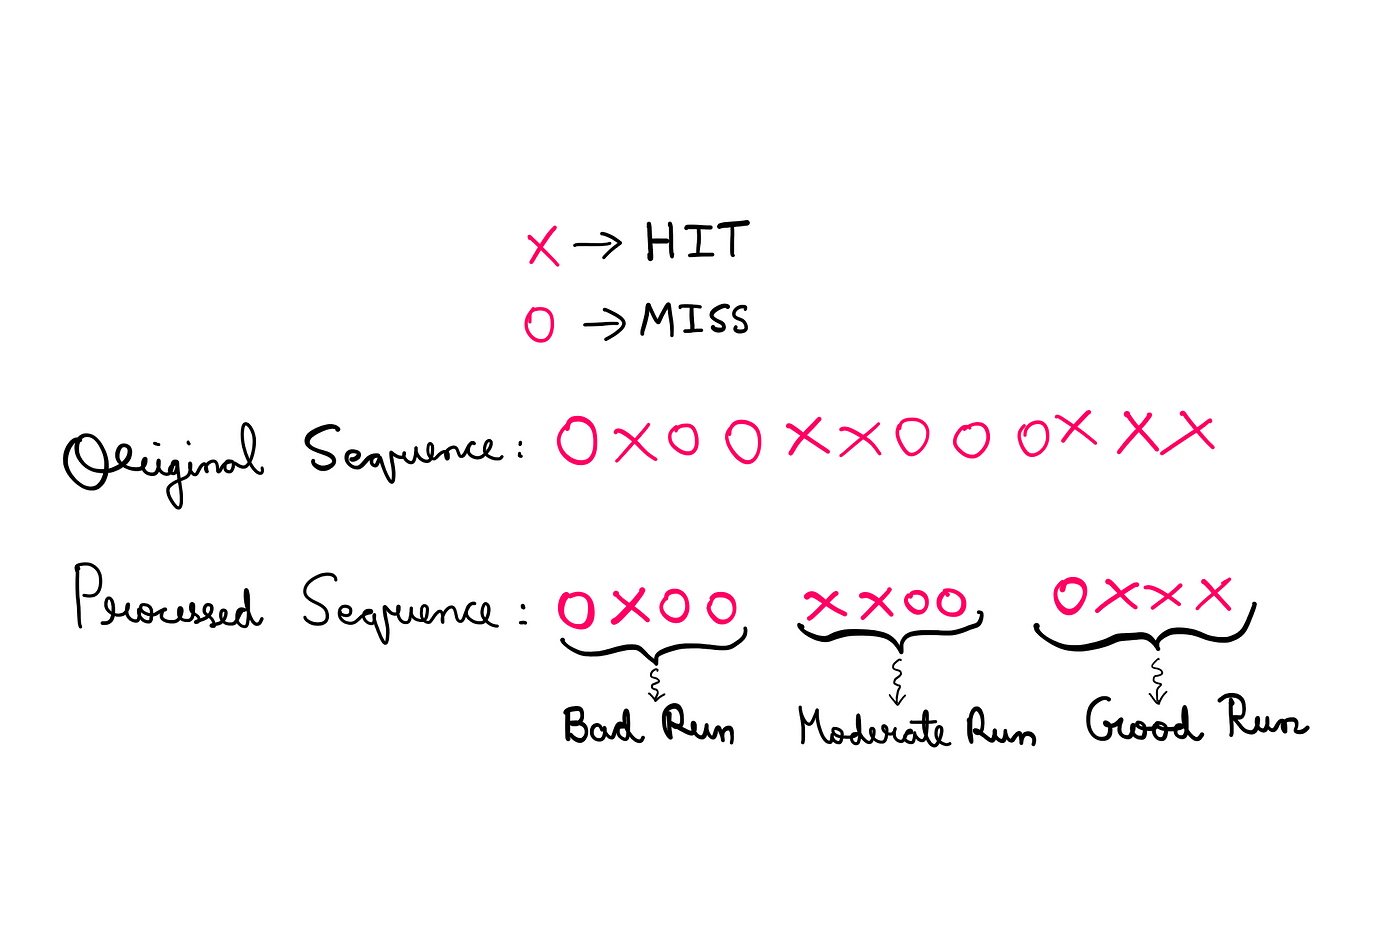 X → HIT
O → MISS
Original Sequence: O X O O X X O O O X X X
Processed Sequence: O X O O X X O O O X X X
Bad Run Moderate Run Good Run